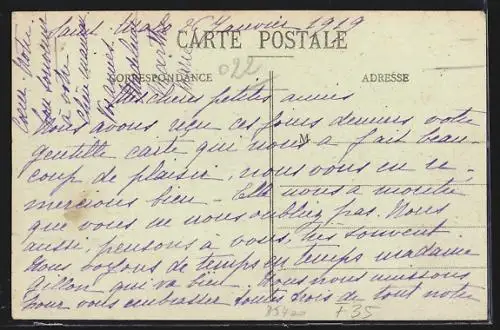 Saint Malo 26 Janvier 1919
CARTE POSTALE
022
CORRESPONDANCE
ADRESSE
M
Mes chers petits amis
Nous avons reçu ces jours derniers votre
gentille carte qui nous a fait beau-
coup de plaisir, nous vous en re-
mercions bien - Elle nous a montré
que vous ne nous oubliez pas. Nous
aussi pensons à vous très souvent
Nous voyons de temps en temps madame
Gillon qui va bien. Nous nous unissons
pour vous embrasser tous trois de tout notre
cœur. Notre
bon souvenir
à votre
chère maman
85420
+35